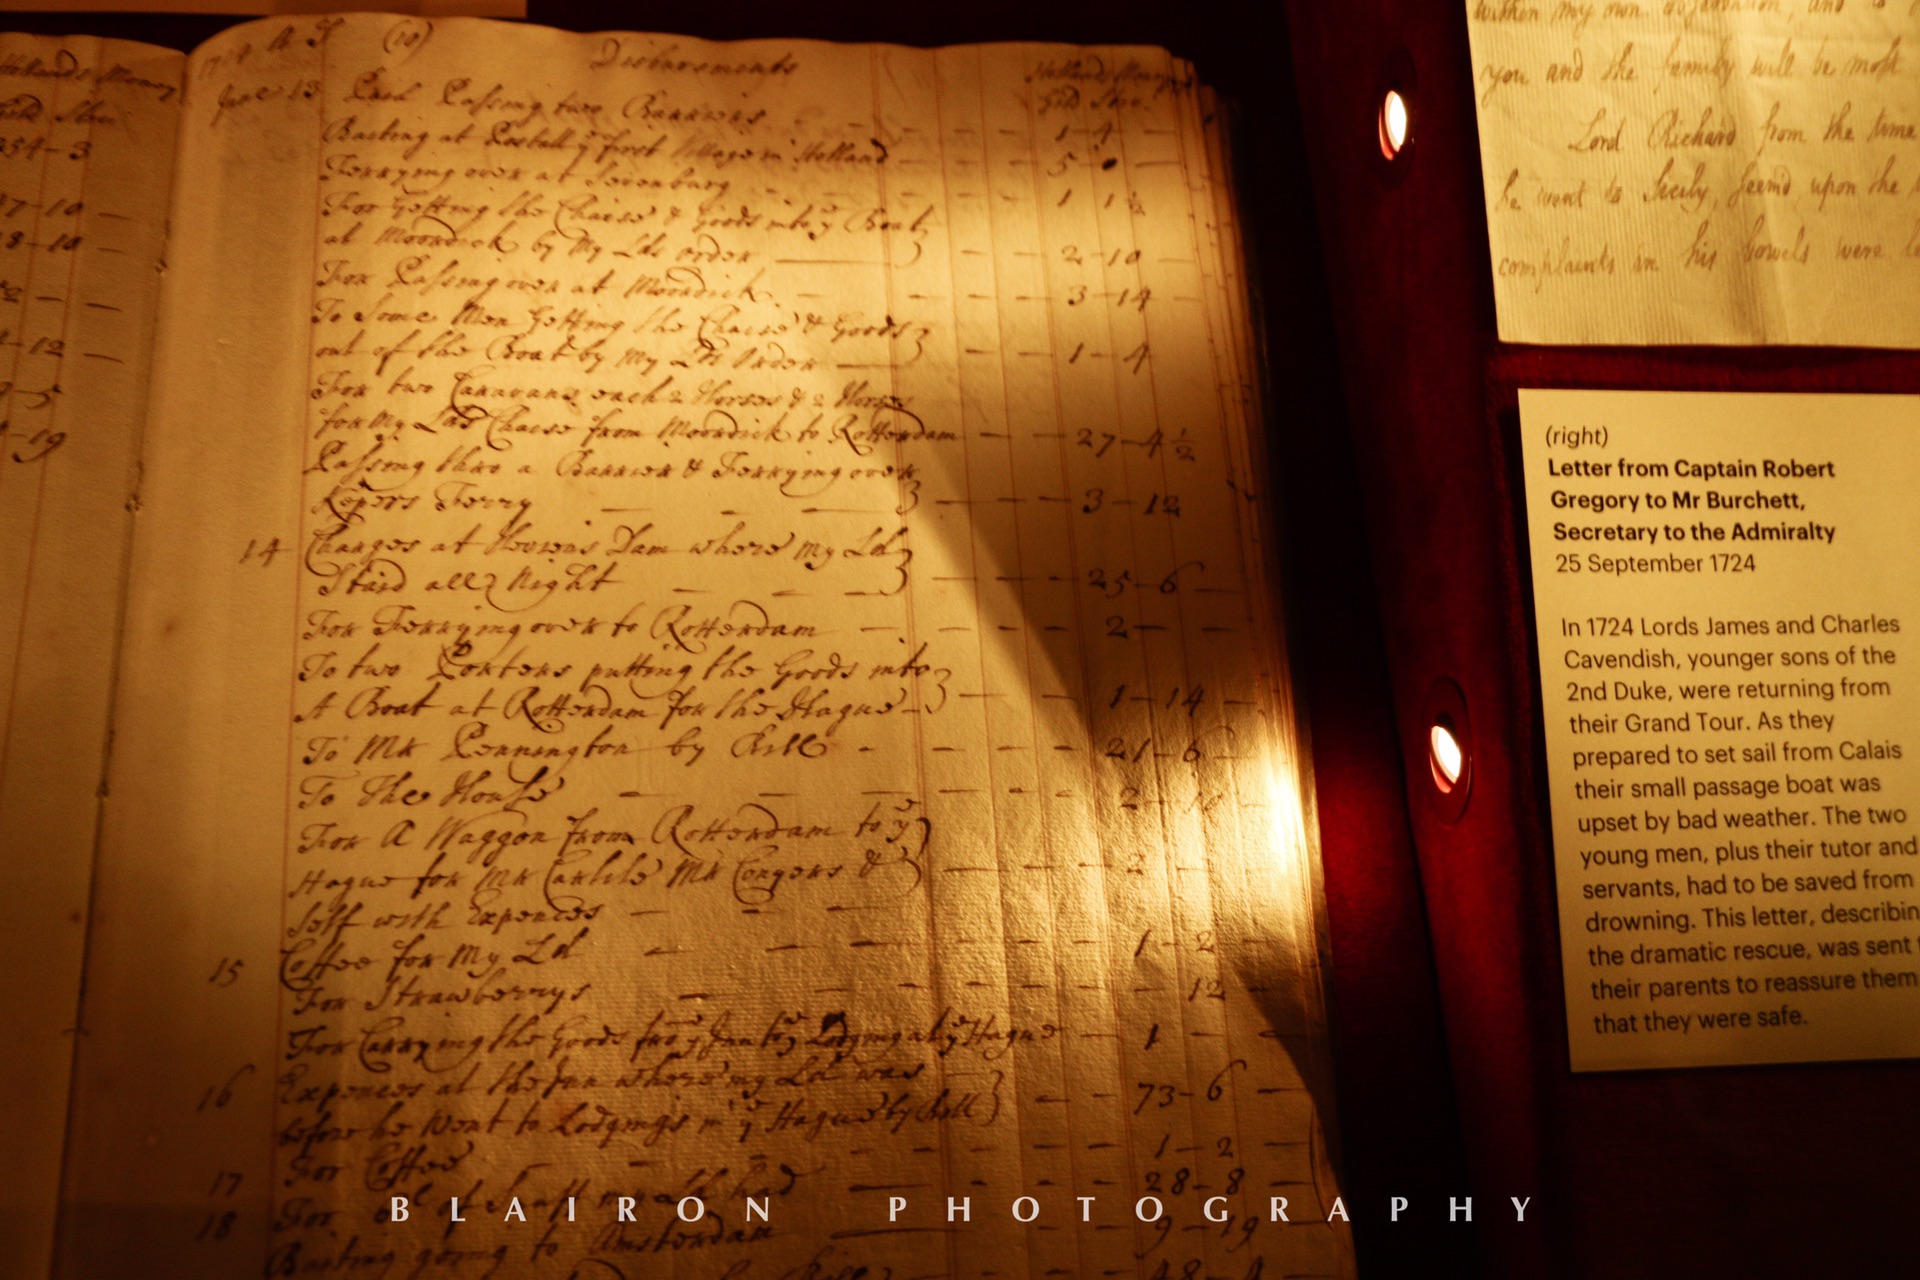 Hollands Money
Gild Stiv.
254-3
7-10 —
8-10 —
2 — —
-12 —
-5
-19
(10)
Disbursments
Hollands Money
Gild Stiv.
June 13 Paid Passing two Barriers — — — 1-4 —
Baiting at ye first Village in Holland — — 5 —
Ferrying over at — — — 1 1½
For Getting the Chaise & Goods into ye Boat
at Moordick by My Lds order — — — 2-10
For Passing over at Moordick — — — 3-14
To Some Men Getting the Chaise & Goods
out of the Boat by My Lds Order — — — 1-4
For two Caravans each 2 Horses & 2 Horses
for My Lds Chaise from Moordick to Rotterdam — — 27-4½
Passing thro a Barrier & Ferrying over
Ferry — — — 3-12
14 Charges at Dam where my Ld
Staid all Night — — — 25-6 —
For Ferrying over to Rotterdam — — — 2 — —
To two Porters putting the Goods into
A Boat at Rotterdam for the Hague — — — 1-14 —
To Mr Pennington by Bill — — — 21-6
To the House — — — 2-10
For A Waggon from Rotterdam to ye
Hague for Mr Carlile Mr Congers & — — — 2 —
Self with Expences — — —
15 Coffee for My Ld — — — 1-2 —
For Strawberrys — — — 12
For Carrying the Goods fro ye Inn to ye Lodging at ye Hague — 1 — —
16 Expences at the Inn where my Ld was
before he Went to Lodgings in ye Hague by Bill — — 73-6 —
For Coffee — — — 1-2 —
17 For — — — 28-8 —
18 Baiting going to Amsterdam — 9-19
48-4
within my own observation, and to
you and the family will be most
Lord Richard from the time
he went to Sicily, seem'd, upon the
complaints in his bowels were
(right)
Letter from Captain Robert
Gregory to Mr Burchett,
Secretary to the Admiralty
25 September 1724
In 1724 Lords James and Charles
Cavendish, younger sons of the
2nd Duke, were returning from
their Grand Tour. As they
prepared to set sail from Calais
their small passage boat was
upset by bad weather. The two
young men, plus their tutor and
servants, had to be saved from
drowning. This letter, describin
the dramatic rescue, was sent
their parents to reassure them
that they were safe.
BLAIRON PHOTOGRAPHY